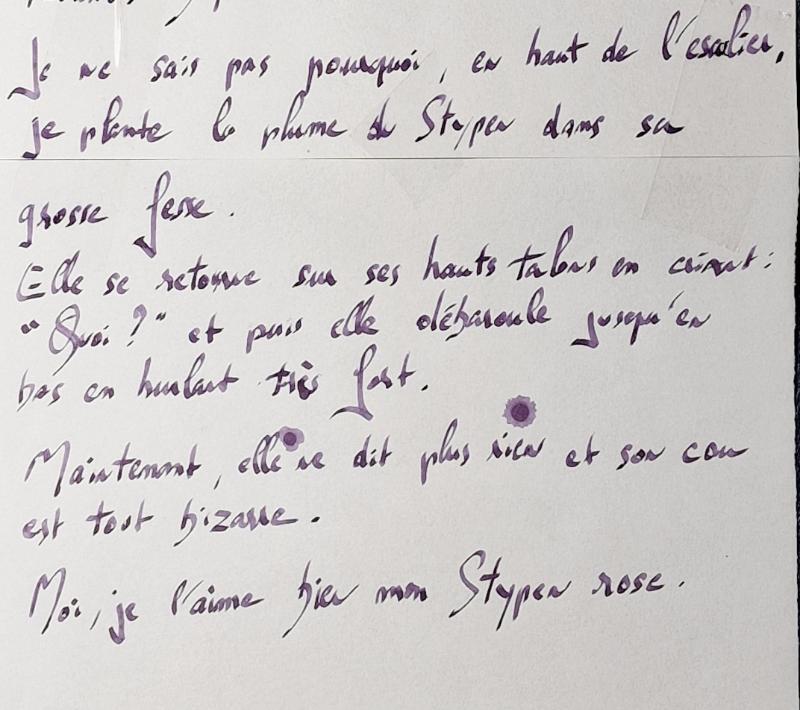 Je ne sais pas pourquoi, en haut de l'escalier,
je plante la plume du Stypen dans sa
grosse fesse.
Elle se retourne sur ses hauts talons en criant :
"Quoi ?" et puis elle débaroule jusqu'en
bas en hurlant très fort.
Maintenant, elle ne dit plus rien et son cou
est tout bizarre.
Moi, je l'aime bien mon Stypen rose.